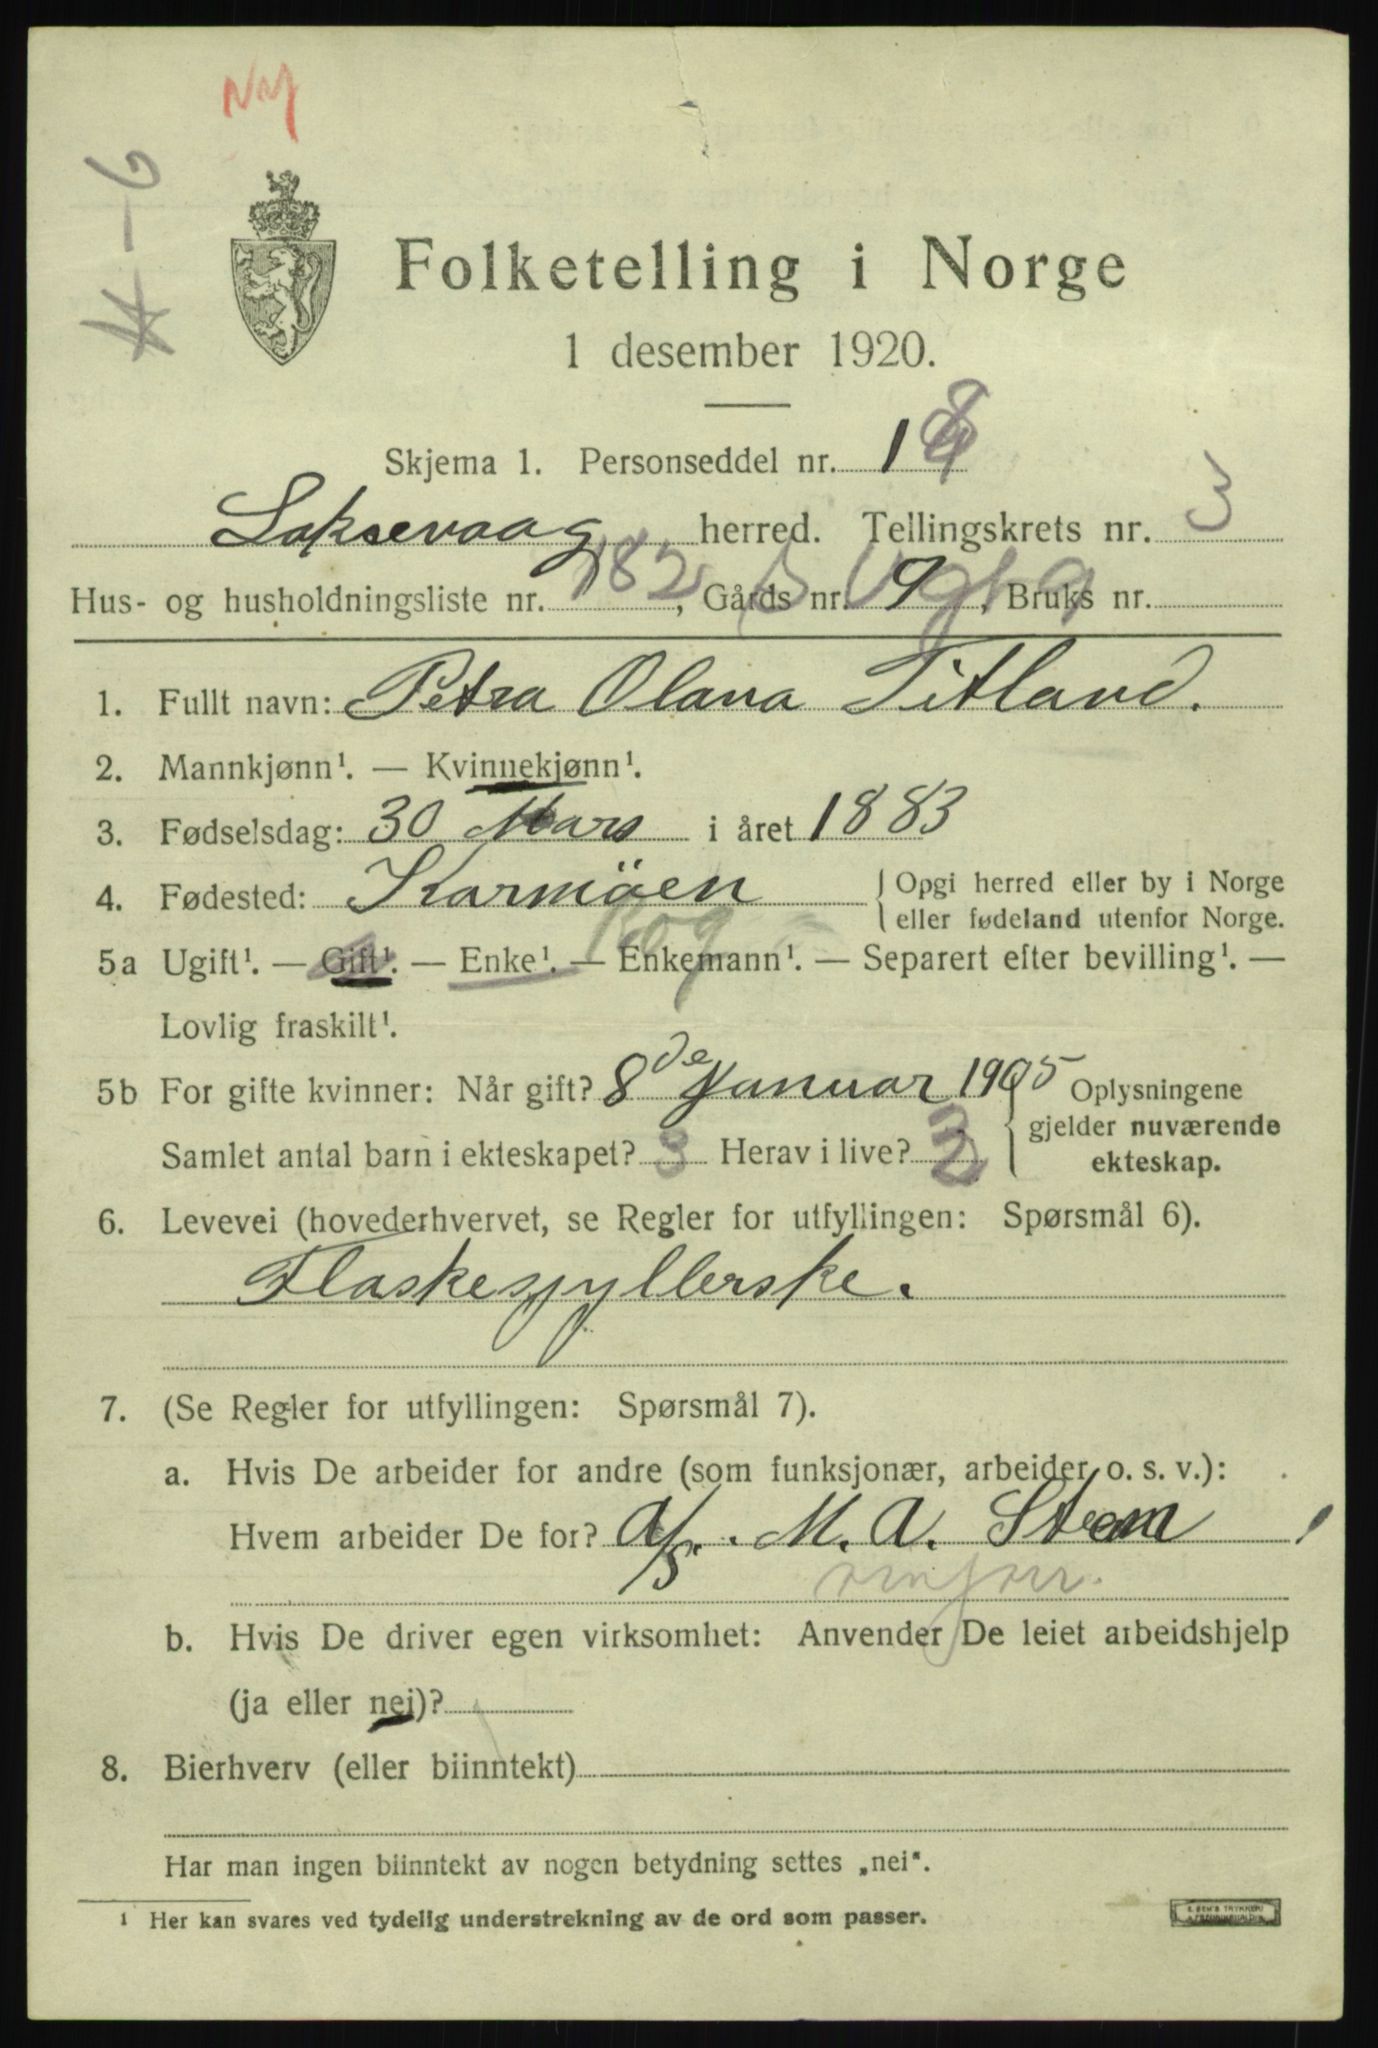 Nej
A-6
Folketelling i Norge
1 desember 1920.
Skjema 1. Personseddel nr. 18
Laksevaag herred. Tellingskrets nr. 3
Hus- og husholdningsliste nr. 182, Gårds nr. 9, Bruks nr.
1. Fullt navn: Petra Olava Titland.
2. Mannkjønn¹. — Kvinnekjønn¹.
3. Fødselsdag: 30 Mars i året 1883
4. Fødested: Karmöen { Opgi herred eller by i Norge
eller fødeland utenfor Norge.
Rog
5a Ugift¹. — Gift¹. — Enke¹. — Enkemann¹. — Separert efter bevilling¹. —
Lovlig fraskilt¹.
5b For gifte kvinner: Når gift? 8de Januar 1905 Oplysningene
gjelder nuværende
Samlet antal barn i ekteskapet? 3 Herav i live? 3 ekteskap.
6. Levevei (hovederhvervet, se Regler for utfyllingen: Spørsmål 6).
Flaskespyllerske.
7. (Se Regler for utfyllingen: Spørsmål 7).
a. Hvis De arbeider for andre (som funksjonær, arbeider o. s. v.):
Hvem arbeider De for? A/S. M. A. Strøm
b. Hvis De driver egen virksomhet: Anvender De leiet arbeidshjelp
(ja eller nei)?
8. Bierhverv (eller biinntekt)
Har man ingen biinntekt av nogen betydning settes „nei“.
¹ Her kan svares ved tydelig understrekning av de ord som passer.